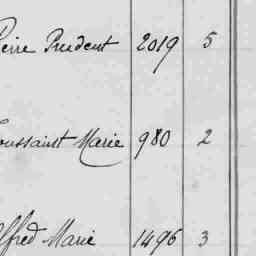 Pierre Prudent 2019 5
Toussaint Marie 980 2
Alfred Marie 1496 3